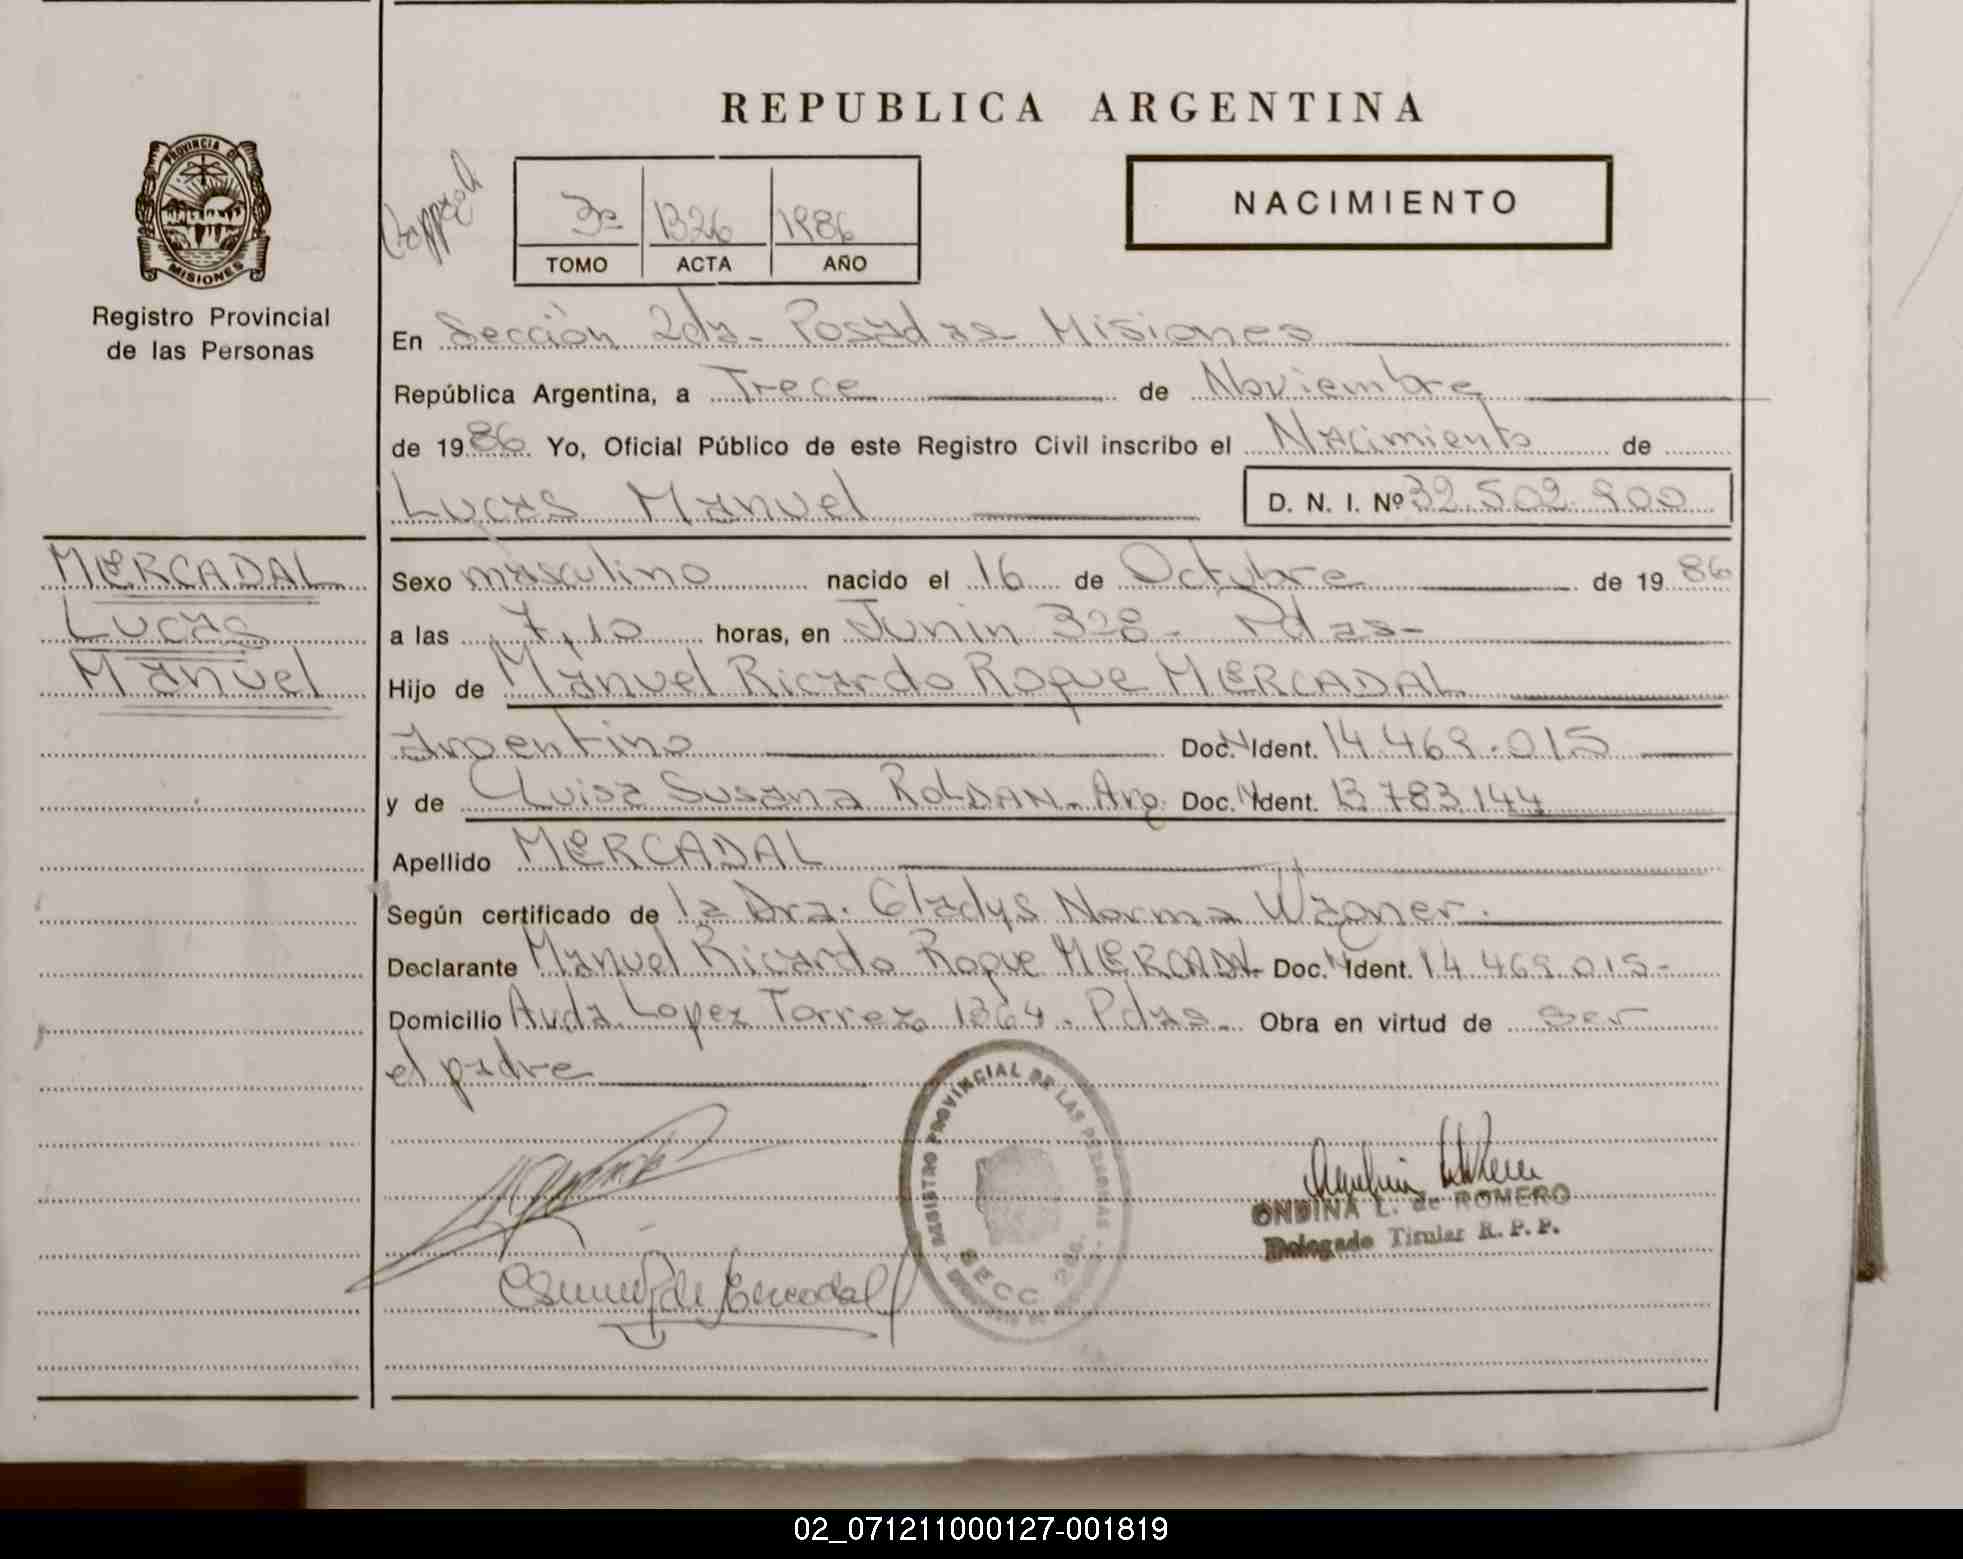 REPUBLICA ARGENTINA
NACIMIENTO
3º 1326 1986
TOMO ACTA AÑO
PROVINCIA DE
MISIONES
Registro Provincial
de las Personas
En Sección 2da. Posadas Misiones
República Argentina, a Trece de Noviembre
de 1986 Yo, Oficial Público de este Registro Civil inscribo el Nacimiento de
Lucas Manuel D. N. I. Nº 32.502.900
MERCADAL
Lucas
Manuel
Sexo masculino nacido el 16 de Octubre de 1986
a las 7,10 horas, en Junin 328. Pdas-
Hijo de Manuel Ricardo Roque MERCADAL
argentino Doc. N Ident. 14.469.015
y de Luisa Susana ROLDAN. Arg. Doc. N Ident. 13.783.144
Apellido MERCADAL
Según certificado de la Dra. Gladys Norma Wagner.
Declarante Manuel Ricardo Roque MERCADAL Doc. N Ident. 14.469.015-
Domicilio Avda. Lopez Torres 1364. Pdas. Obra en virtud de ser
el padre
REGISTRO PROVINCIAL DE LAS PERSONAS
SECC 2da.
ONDINA L. de ROMERO
Delegado Titular R. P. P.
de Mercadal
02_071211000127-001819